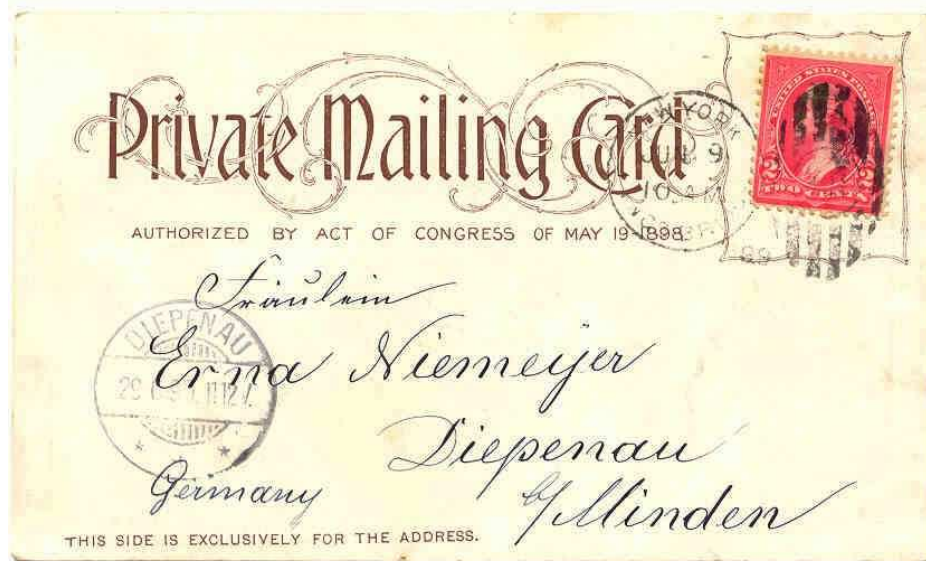 Private Mailing Card
AUTHORIZED BY ACT OF CONGRESS OF MAY 19-1898.
NEW YORK
JUN 9
10 AM
99
UNITED STATES POSTAGE
2 2
TWO CENTS
Fräulein
Erna Niemeijer
Diepenau
b/Minden
Germany
DIEPENAU
29
THIS SIDE IS EXCLUSIVELY FOR THE ADDRESS.